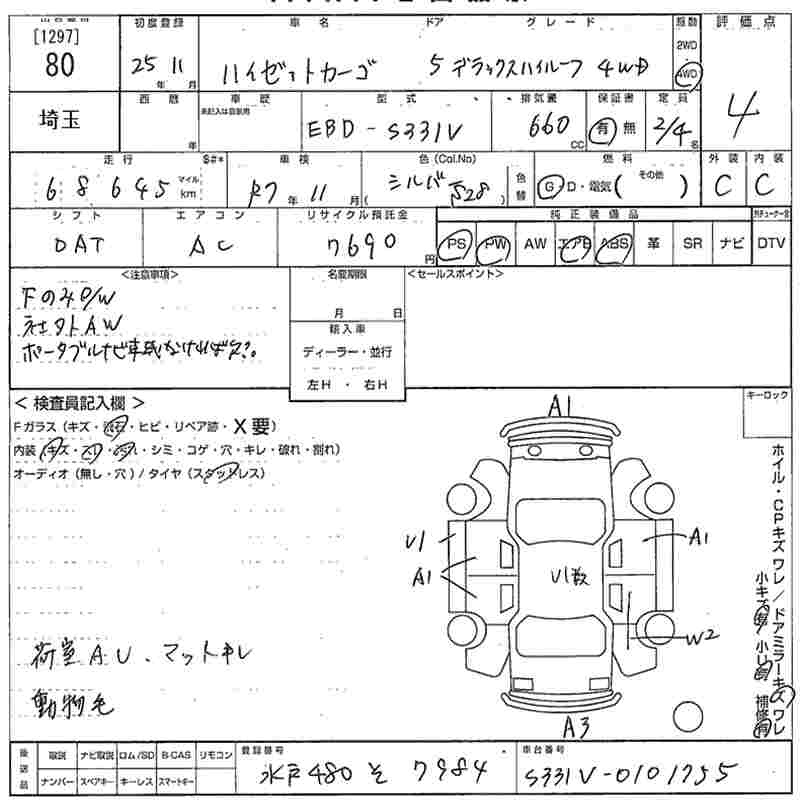 [1297]
80
初度登録
25年 11月
車名
ドア
グレード
ハイゼットカーゴ 5 デラックスハイルーフ 4WD
駆動
2WD
4WD
評価点
4
埼玉
西暦
年
車歴
未記入は自家用
型式
EBD-S331V
排気量
660
CC
保証書
有 無
定員
2/4名
走行
68645
マイル
km
S#*
車検
R7年 11月
色 (Col.No)
シルバ
(S28)
色替
燃料
G・D・電気( その他 )
外装
C
内装
C
シフト
DAT
エアコン
AC
リサイクル預託金
7690
円
純正装備品
PS PW AW エアB ABS 革 SR ナビ
DTV
<注意事項>
下のみO/W
社外AW
名変期限
月 日
輸入車
ディーラー・並行
左H ・ 右H
<セールスポイント>
キーロック
< 検査員記入欄 >
Fガラス (キズ・飛石・ヒビ・リペア跡・X要)
内装 (キズ・スリ・汚れ・シミ・コゲ・穴・キレ・破れ・割れ)
オーディオ (無し・穴) / タイヤ (スタッドレス)
A1
U1
A1
A1
U1数
W2
A3
荷室AU、マットキレ
動物毛
ホイル・CPキズ ワレ / ドアミラーキズ ワレ
小キズ有 小U有 補修有
後送品
取説 ナビ取説 ロム/SD B-CAS リモコン
ナンバー スペアキー キーレス スマートキー
登録番号
水戸480 そ 7984
車台番号
S331V-0101755